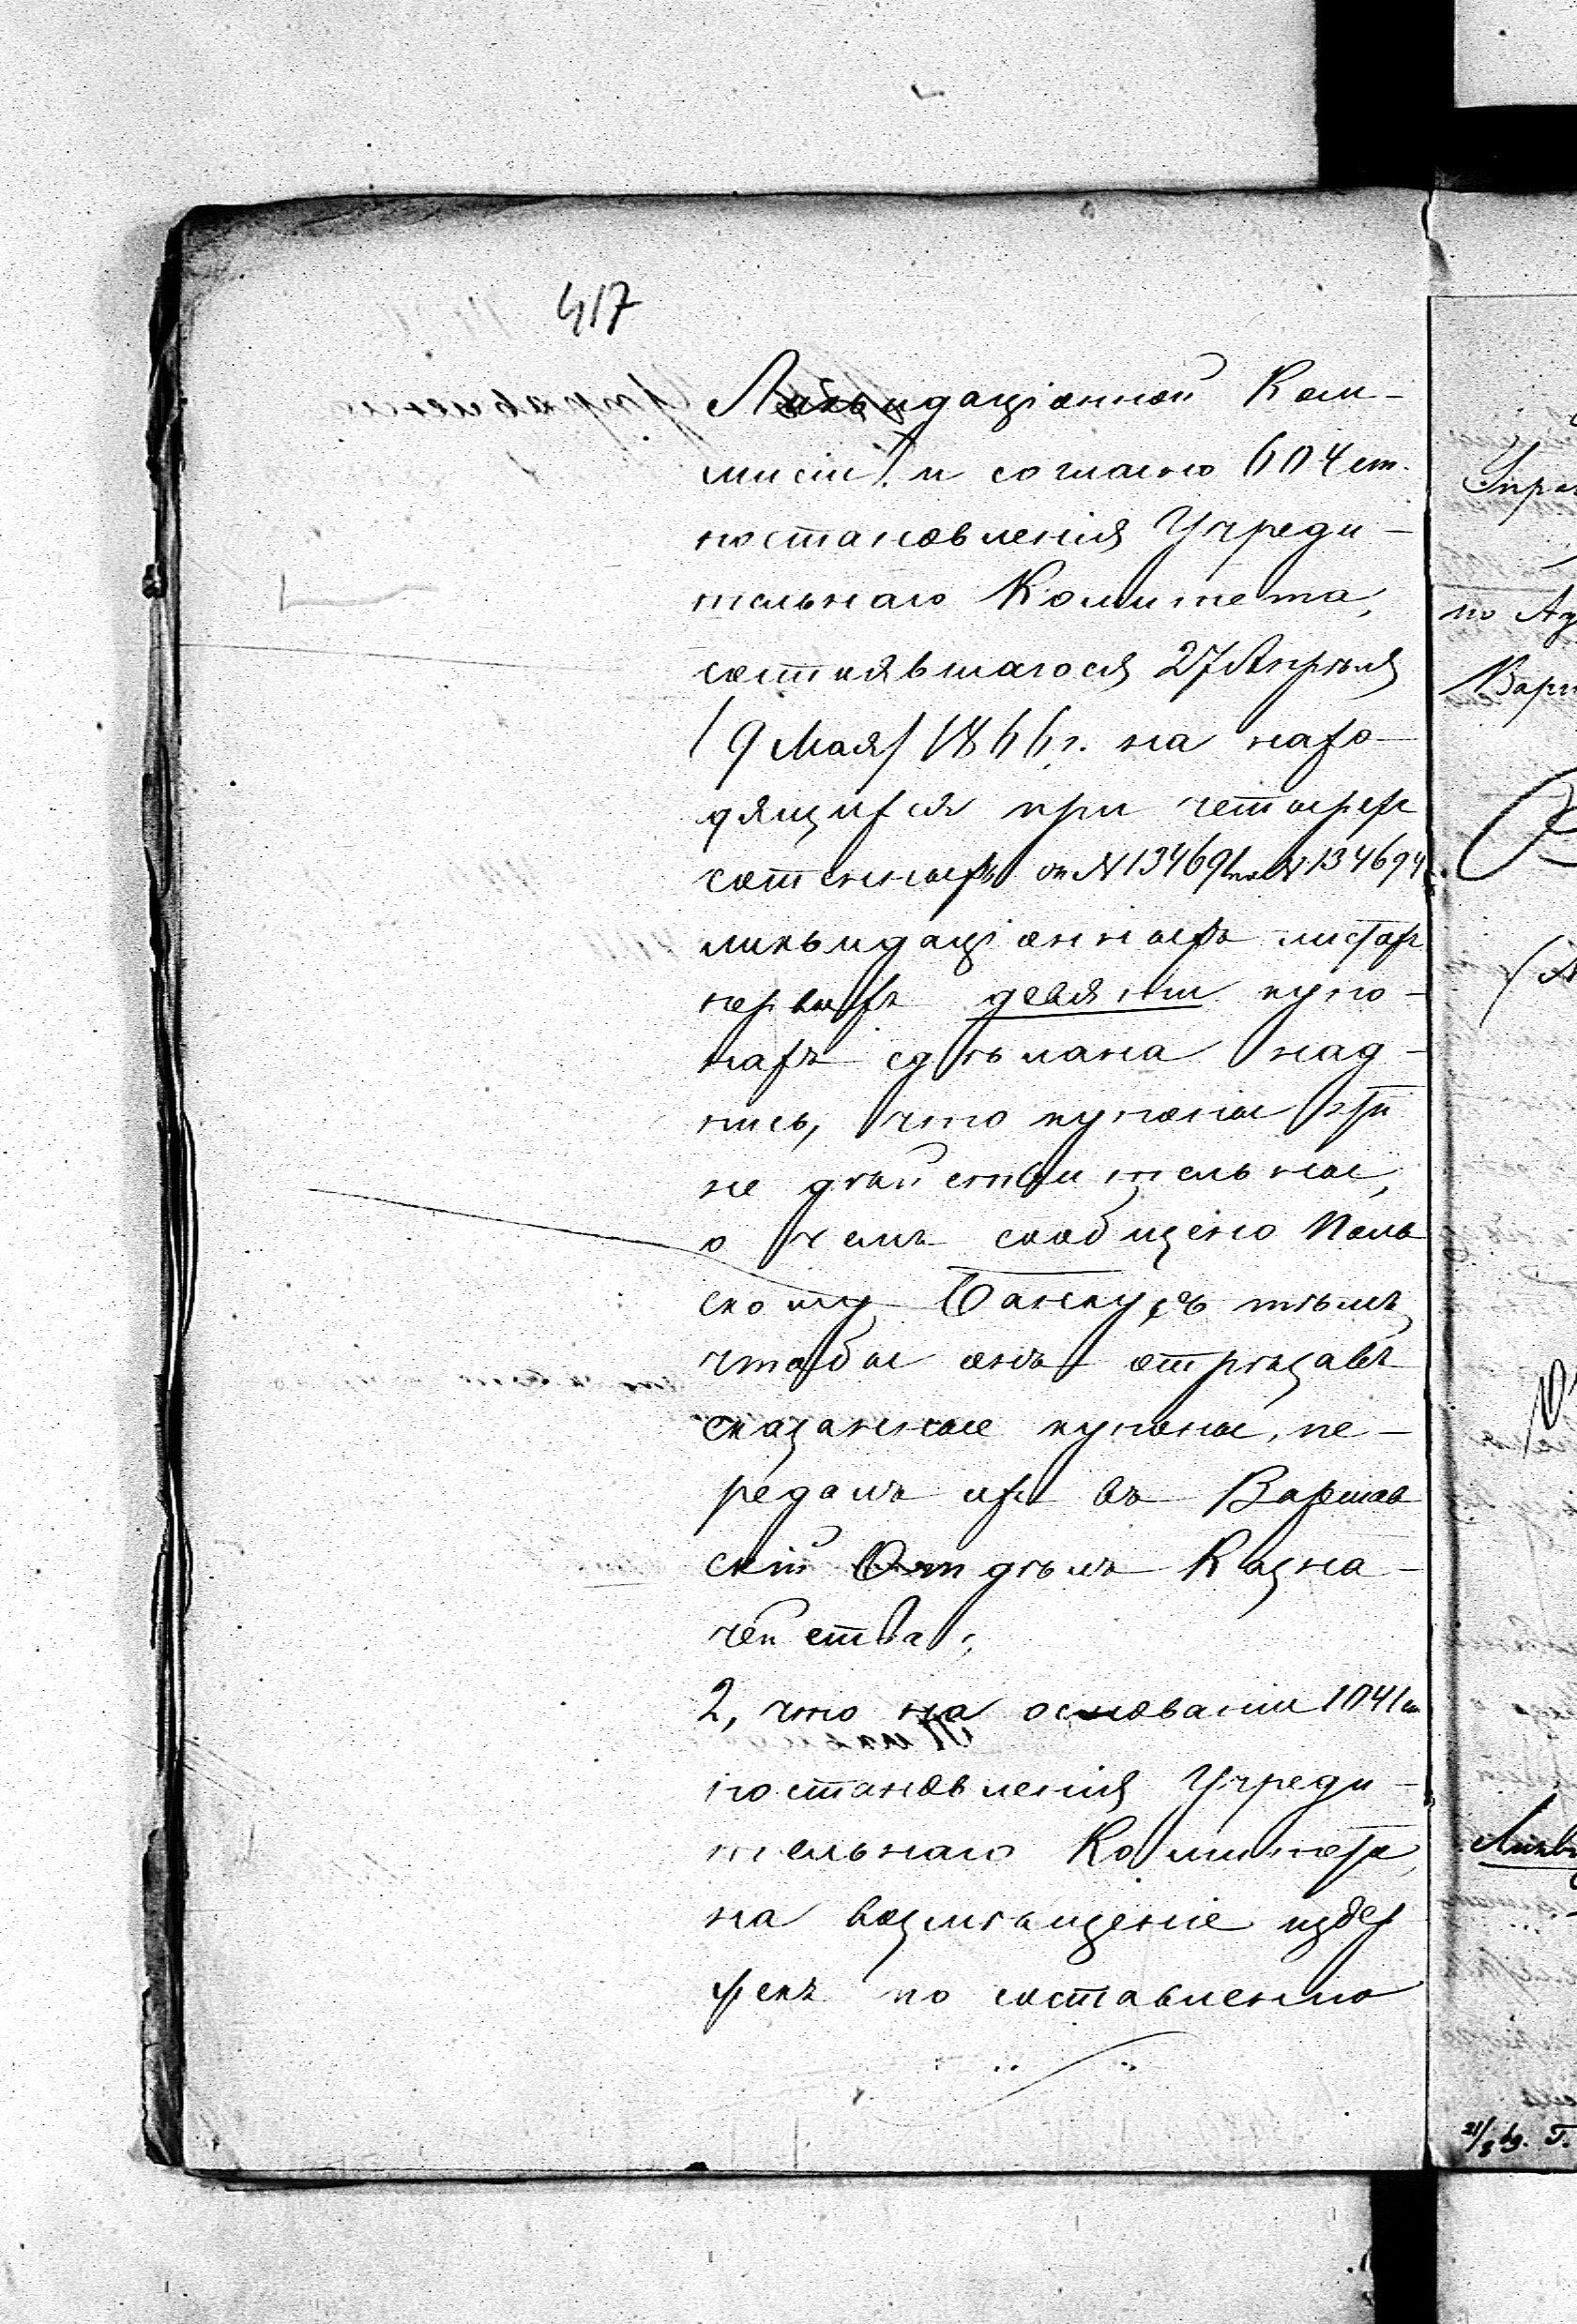 417
Ликвидаціонной Ком-
мисіи/ и согласно 604 ст.
постановленія Учреди-
тельнаго Комитета,
состоявшагося 27 Апрѣля
/9 Мая/ 1866 г. на нахо-
дящихся при четырех
сотенныхъ от N 134691 по N 134694
ликвидаціонныхъ листах
первыхъ девяти купо-
нахъ сдѣлана над-
пись, что купоны эти
не дѣйствительны,
о чемъ сообщено Поль
скому Банку, съ тѣмъ
чтобы онъ отрѣзавъ
сказанные купоны, пе-
редалъ их въ Варшав
скій Отдѣлъ Казна-
чейства;
2, что на основаніи 1041 ст
постановленія Учреди-
тельнаго Комитета,
на возмѣщеніе издер
жекъ по составленію
Упра
по Ау
Варш
Ликв
21/8 69. Г.